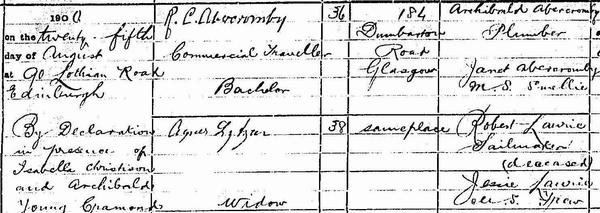 190
P. C. Abercromby
36
184
Archibald Abercromby
on the twenty-fifth
Dumbarton
Plumber
day of August
Commercial Traveller
Road
at 90 Lothian Road
Glasgow
Janet Abercromby
Edinburgh
Bachelor
M. S. Smellie
By Declaration
Agnes
38
same place
Robert Lawrie
in presence of
Sailmaker
Isabella Christison
(deceased)
and Archibald
Jessie Lawrie
Young Cramond
Widow
M. S.